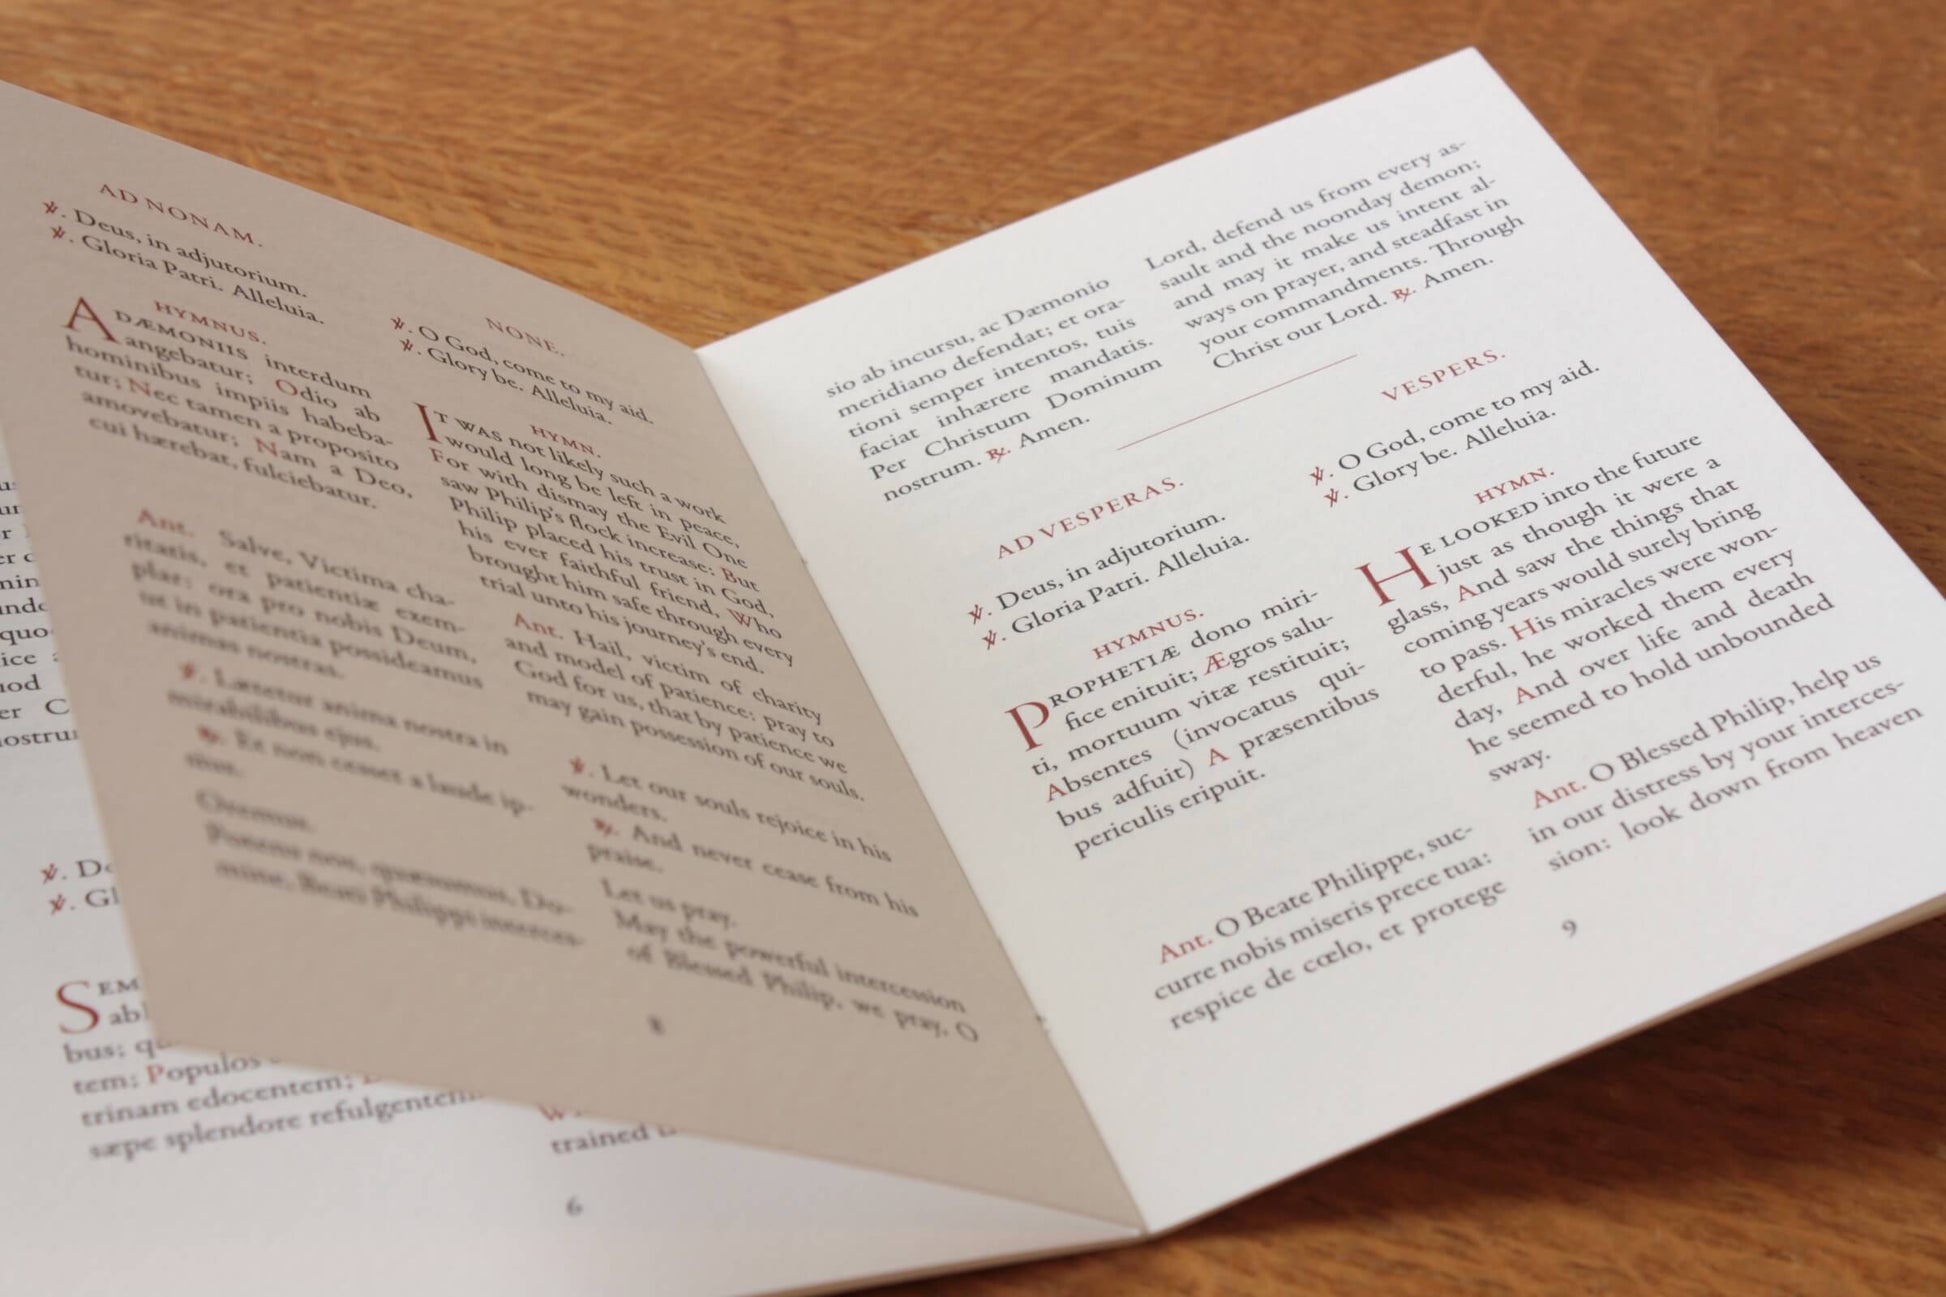 AD NONAM.
℣. Deus, in adjutorium.
℣. Gloria Patri. Alleluia.
HYMNUS.
A DÆMONIIS interdum
angebatur; Odio ab
hominibus impiis habeba-
tur; Nec tamen a proposito
amovebatur; Nam a Deo,
cui hærebat, fulciebatur.
Ant. Salve, Victima cha-
ritatis, et patientiæ exem-
plar: ora pro nobis Deum,
ut in patientia possideamus
animas nostras.
℣. Lætetur anima nostra in
mirabilibus ejus.
℟. Et non cesset a laude ip-
sius.
Oremus.
Potens nos, quæsumus, Do-
mine, Beati Philippi interces-
NONE.
℣. O God, come to my aid.
℣. Glory be. Alleluia.
HYMN.
IT WAS not likely such a work
would long be left in peace,
For with dismay the Evil One
saw Philip's flock increase: But
Philip placed his trust in God,
his ever faithful friend, Who
brought him safe through every
trial unto his journey's end.
Ant. Hail, victim of charity
and model of patience: pray to
God for us, that by patience we
may gain possession of our souls.
℣. Let our souls rejoice in his
wonders.
℟. And never cease from his
praise.
Let us pray.
May the powerful intercession
of Blessed Philip, we pray, O
8
sio ab incursu, ac Dæmonio
meridiano defendat; et ora-
tioni semper intentos, tuis
faciat inhærere mandatis.
Per Christum Dominum
nostrum. ℟. Amen.
Lord, defend us from every as-
sault and the noonday demon;
and may it make us intent al-
ways on prayer, and steadfast in
your commandments. Through
Christ our Lord. ℟. Amen.
AD VESPERAS.
℣. Deus, in adjutorium.
℣. Gloria Patri. Alleluia.
HYMNUS.
PROPHETIÆ dono miri-
fice enituit; Ægros salu-
ti, mortuum vitæ restituit;
Absentes (invocatus qui-
bus adfuit) A præsentibus
periculis eripuit.
Ant. O Beate Philippe, suc-
curre nobis miseris prece tua:
respice de cœlo, et protege
VESPERS.
℣. O God, come to my aid.
℣. Glory be. Alleluia.
HYMN.
HE LOOKED into the future
just as though it were a
glass, And saw the things that
coming years would surely bring
to pass. His miracles were won-
derful, he worked them every
day, And over life and death
he seemed to hold unbounded
sway.
Ant. O Blessed Philip, help us
in our distress by your interces-
sion: look down from heaven
9
℣.
℣. Gl
SEM
bus;
tem; Populos
trinam edocentem;
sæpe splendore refulgentem
trained
6